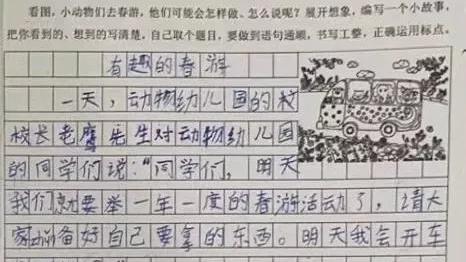 看图，小动物们去春游，他们可能会怎样做、怎么说呢？展开想象，编写一个小故事，
把你看到的、想到的写清楚，自己取个题目，要做到语句通顺，书写工整，正确运用标点。
有趣的春游
一天，动物幼儿园的校
校长老鹰先生对动物幼儿园
的同学们说：“同学们，明天
我们就要举一年一度的春游活动了，请大
家准备好自己要拿的东西。明天我会开车